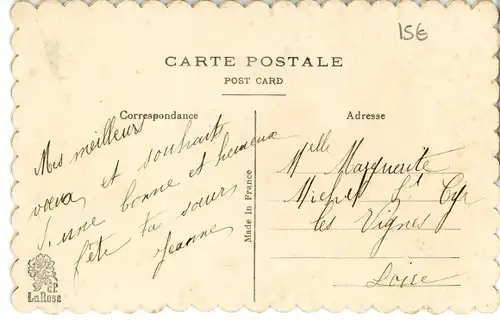 15€
CARTE POSTALE
POST CARD
Correspondance
Adresse
Mes meilleurs
vœux et souhaits
d'une bonne et heureuse
fête ta sœur
Jeanne
Made in France
Melle Marguerite
St Cyr
les Vignes
Loire
CP
La Rose